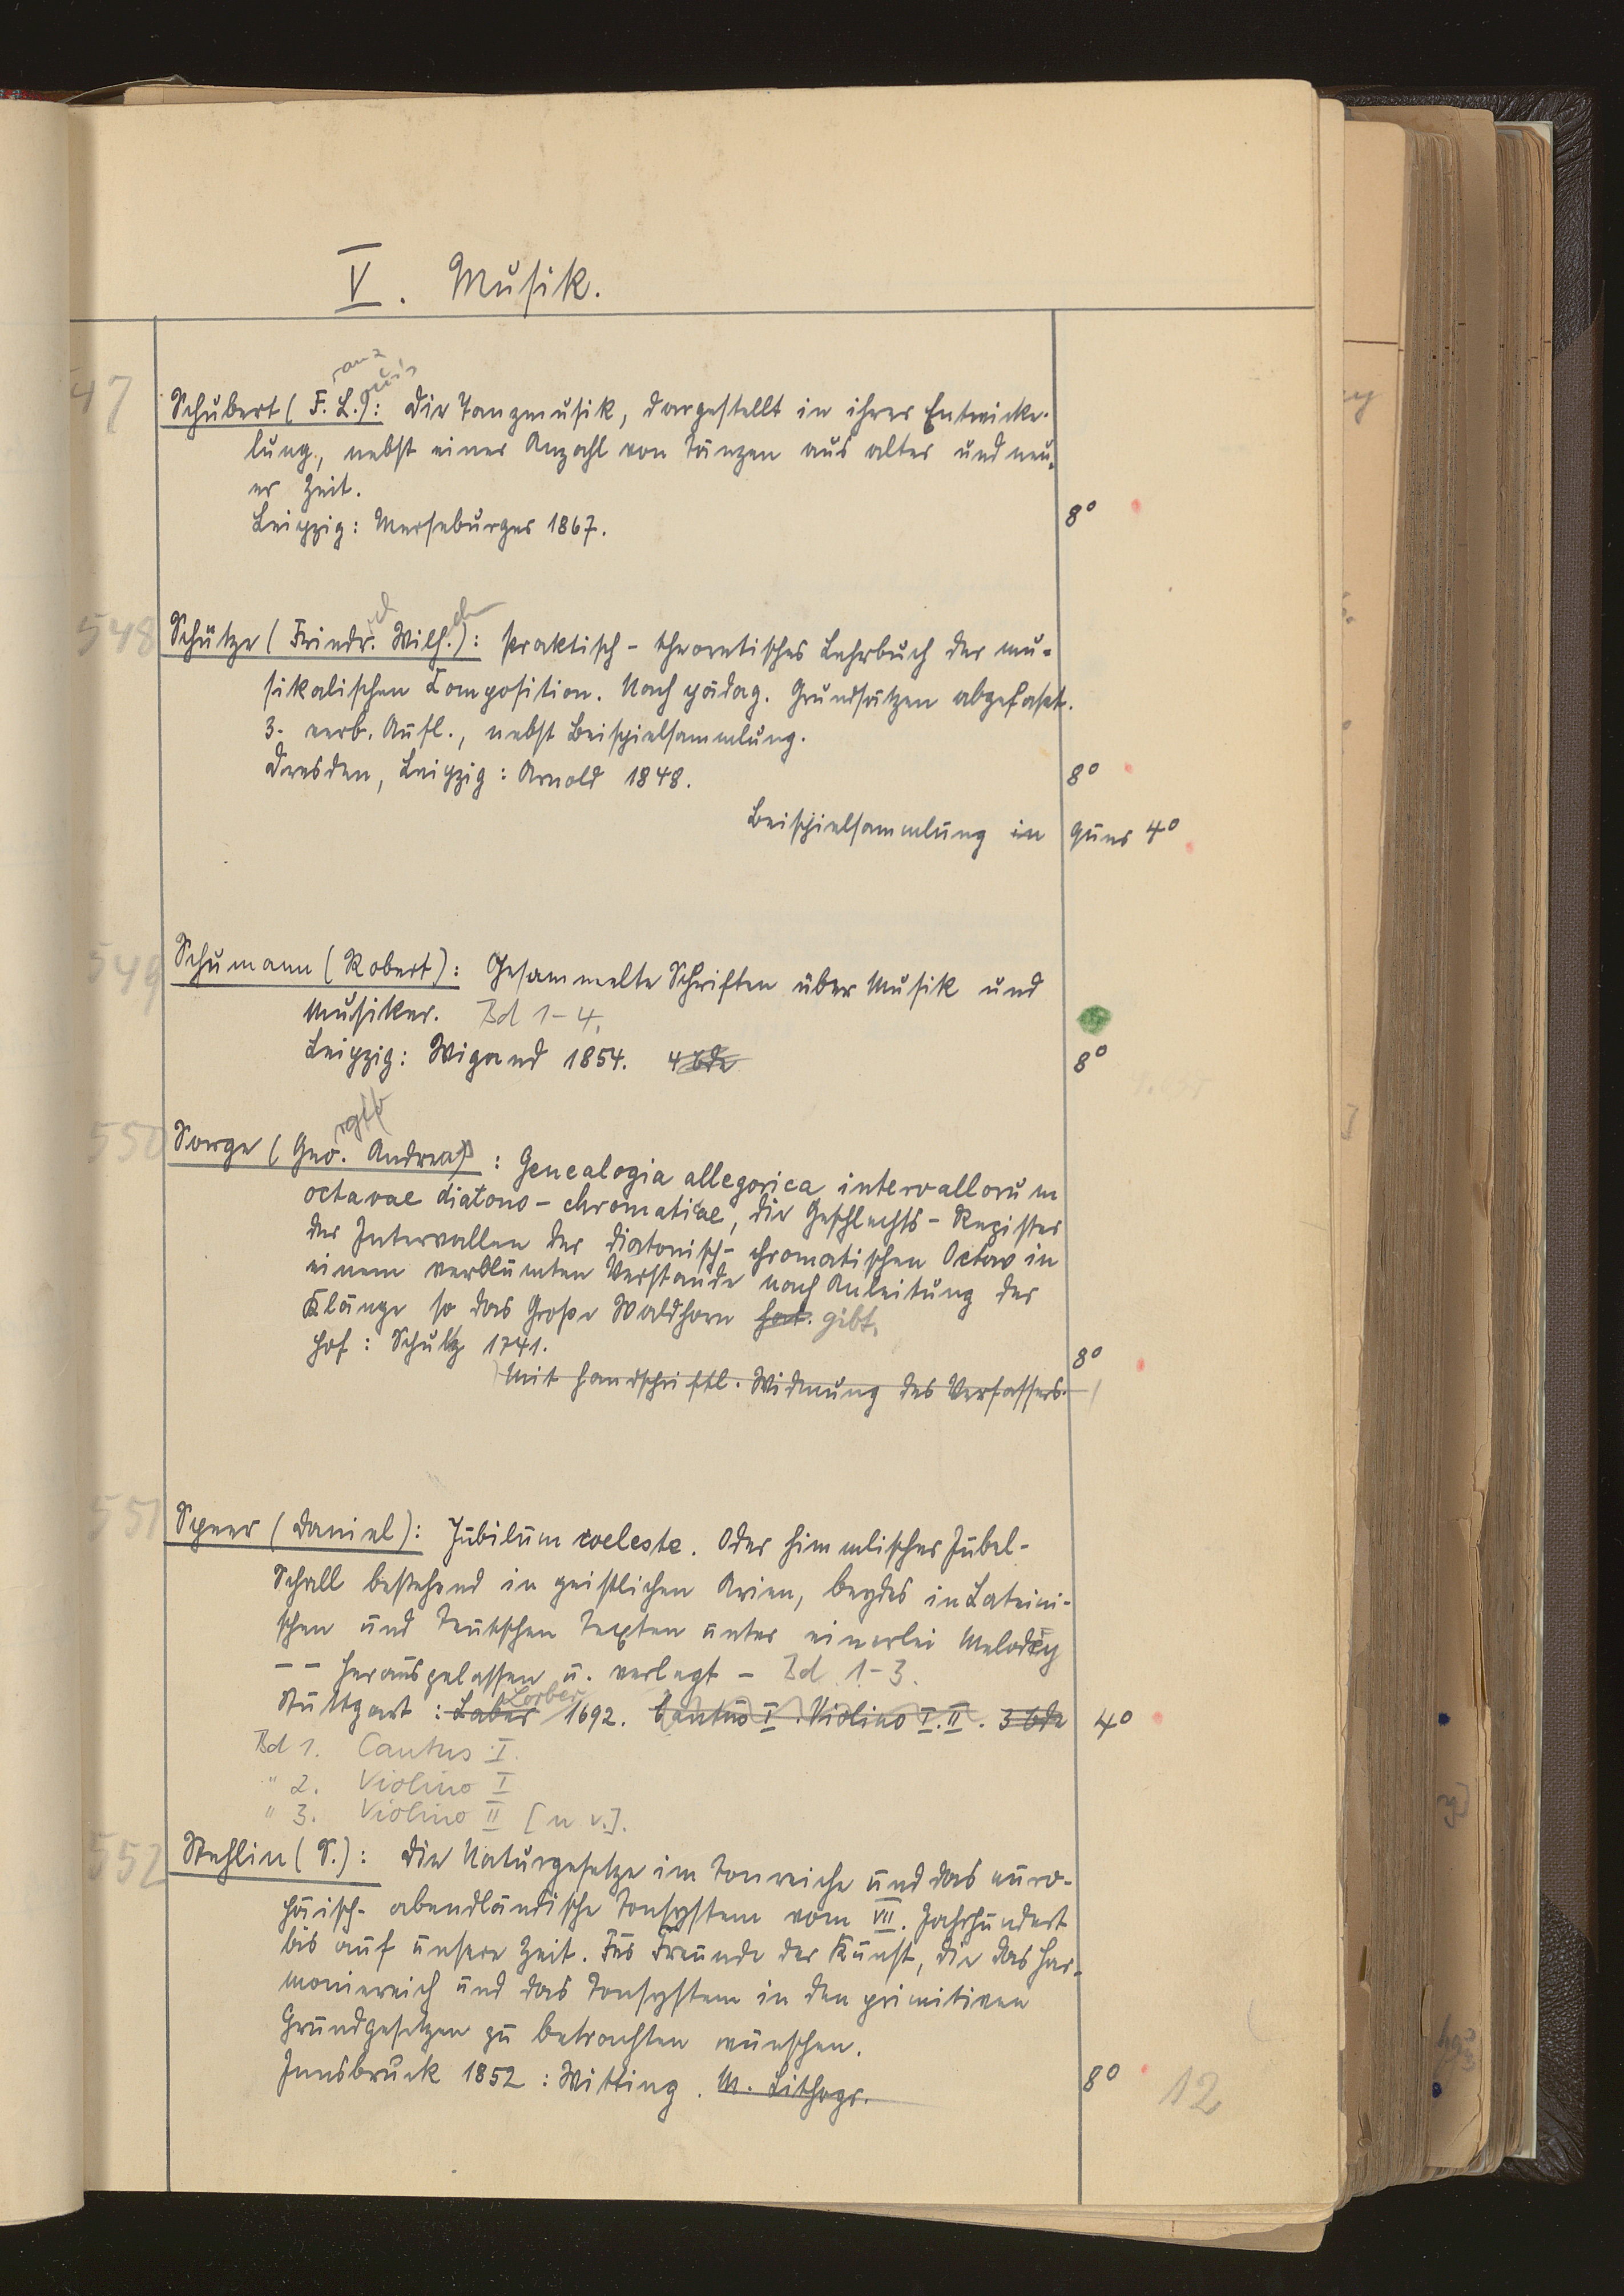 V. Musik.
547
ranz ouis
Schubert (F. L.): Die Tanzmusik, dargestellt in ihrer Entwicke-
lung, nebst einer Anzahl von Tänzen aus alter und neu-
er Zeit.
Leipzig: Merseburger 1867. 8°
548
Schütze (Friedr. Wilh.): Praktisch-theoretisches Lehrbuch der mu-
sikalischen Composition. Nach pädag. Grundsätzen abgefaßt.
3. verb. Aufl., nebst Beispielsammlung.
Dresden, Leipzig: Arnold 1848. 8°
Beispielsammlung in quer 4°
549
Schumann (Robert): Gesammelte Schriften über Musik und
Musiker. Bd 1-4.
Leipzig: Wigand 1854. 4 Bde 8°
550
Sorge (Geo. Andreas): Genealogia allegorica intervallorum
octavae diatono-chromaticae, die Geschlechts-Register
der Intervallen der diatonisch-chromatischen Octav in
einem verblümten Verstande nach Anleitung der
Klänge so das Große Waldhorn hat. gibt.
Hof: Schultz 1741. 8°
Mit handschriftl. Widmung des Verfassers.
551
Speer (Daniel): Jubilum coeleste. Oder himmlischer Jubel-
Schall bestehend in geistlichen Arien, beydes in Lateini-
schen und Teutschen Texten unter einerlei Melodey
-- herausgelassen u. verlegt - Bd 1-3.
Lorber
Stuttgart: Laber 1692. Cantus I. Violino I. II. 3 Bde 4°
Bd 1. Cantus I.
" 2. Violino I
" 3. Violino II [n v.].
552
Stehlin (S.): Die Naturgesetze im Tonreiche und das euro-
päisch-abendländische Tonsystem vom VII. Jahrhundert
bis auf unsere Zeit. Für Freunde der Kunst, die das Har-
moniereich und das Tonsystem in den primitiven
Grundgesetzen zu betrachten wünschen.
Innsbruck 1852: Witting. M. Lithogr. 8°
12